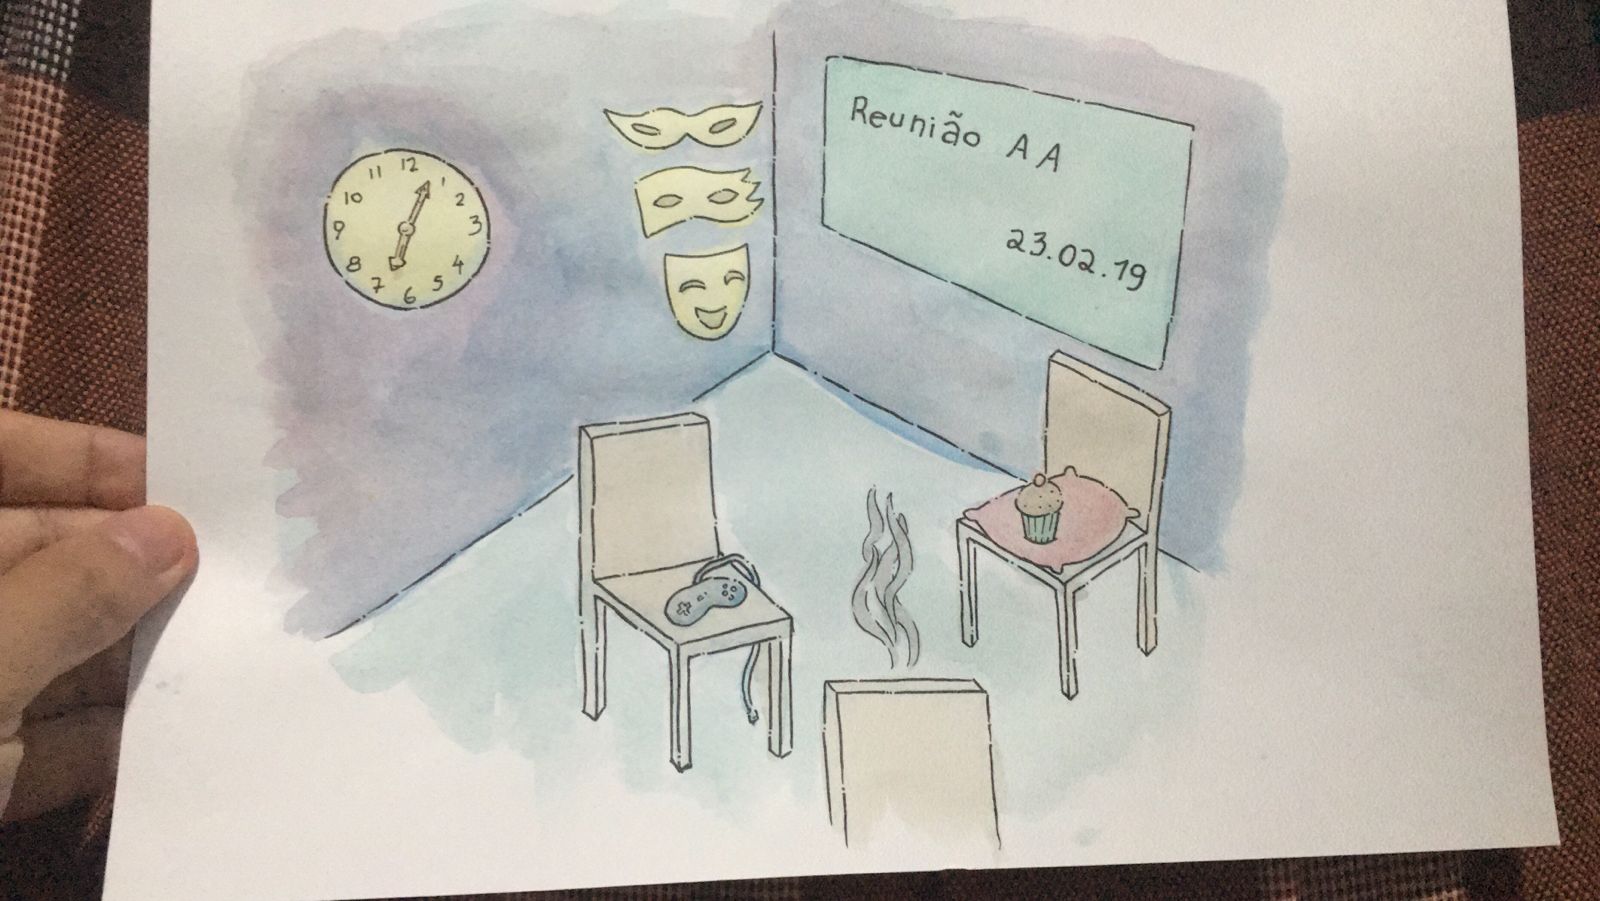 12
1
2
3
4
5
6
7
8
9
10
11
Reunião AA
23.02.19